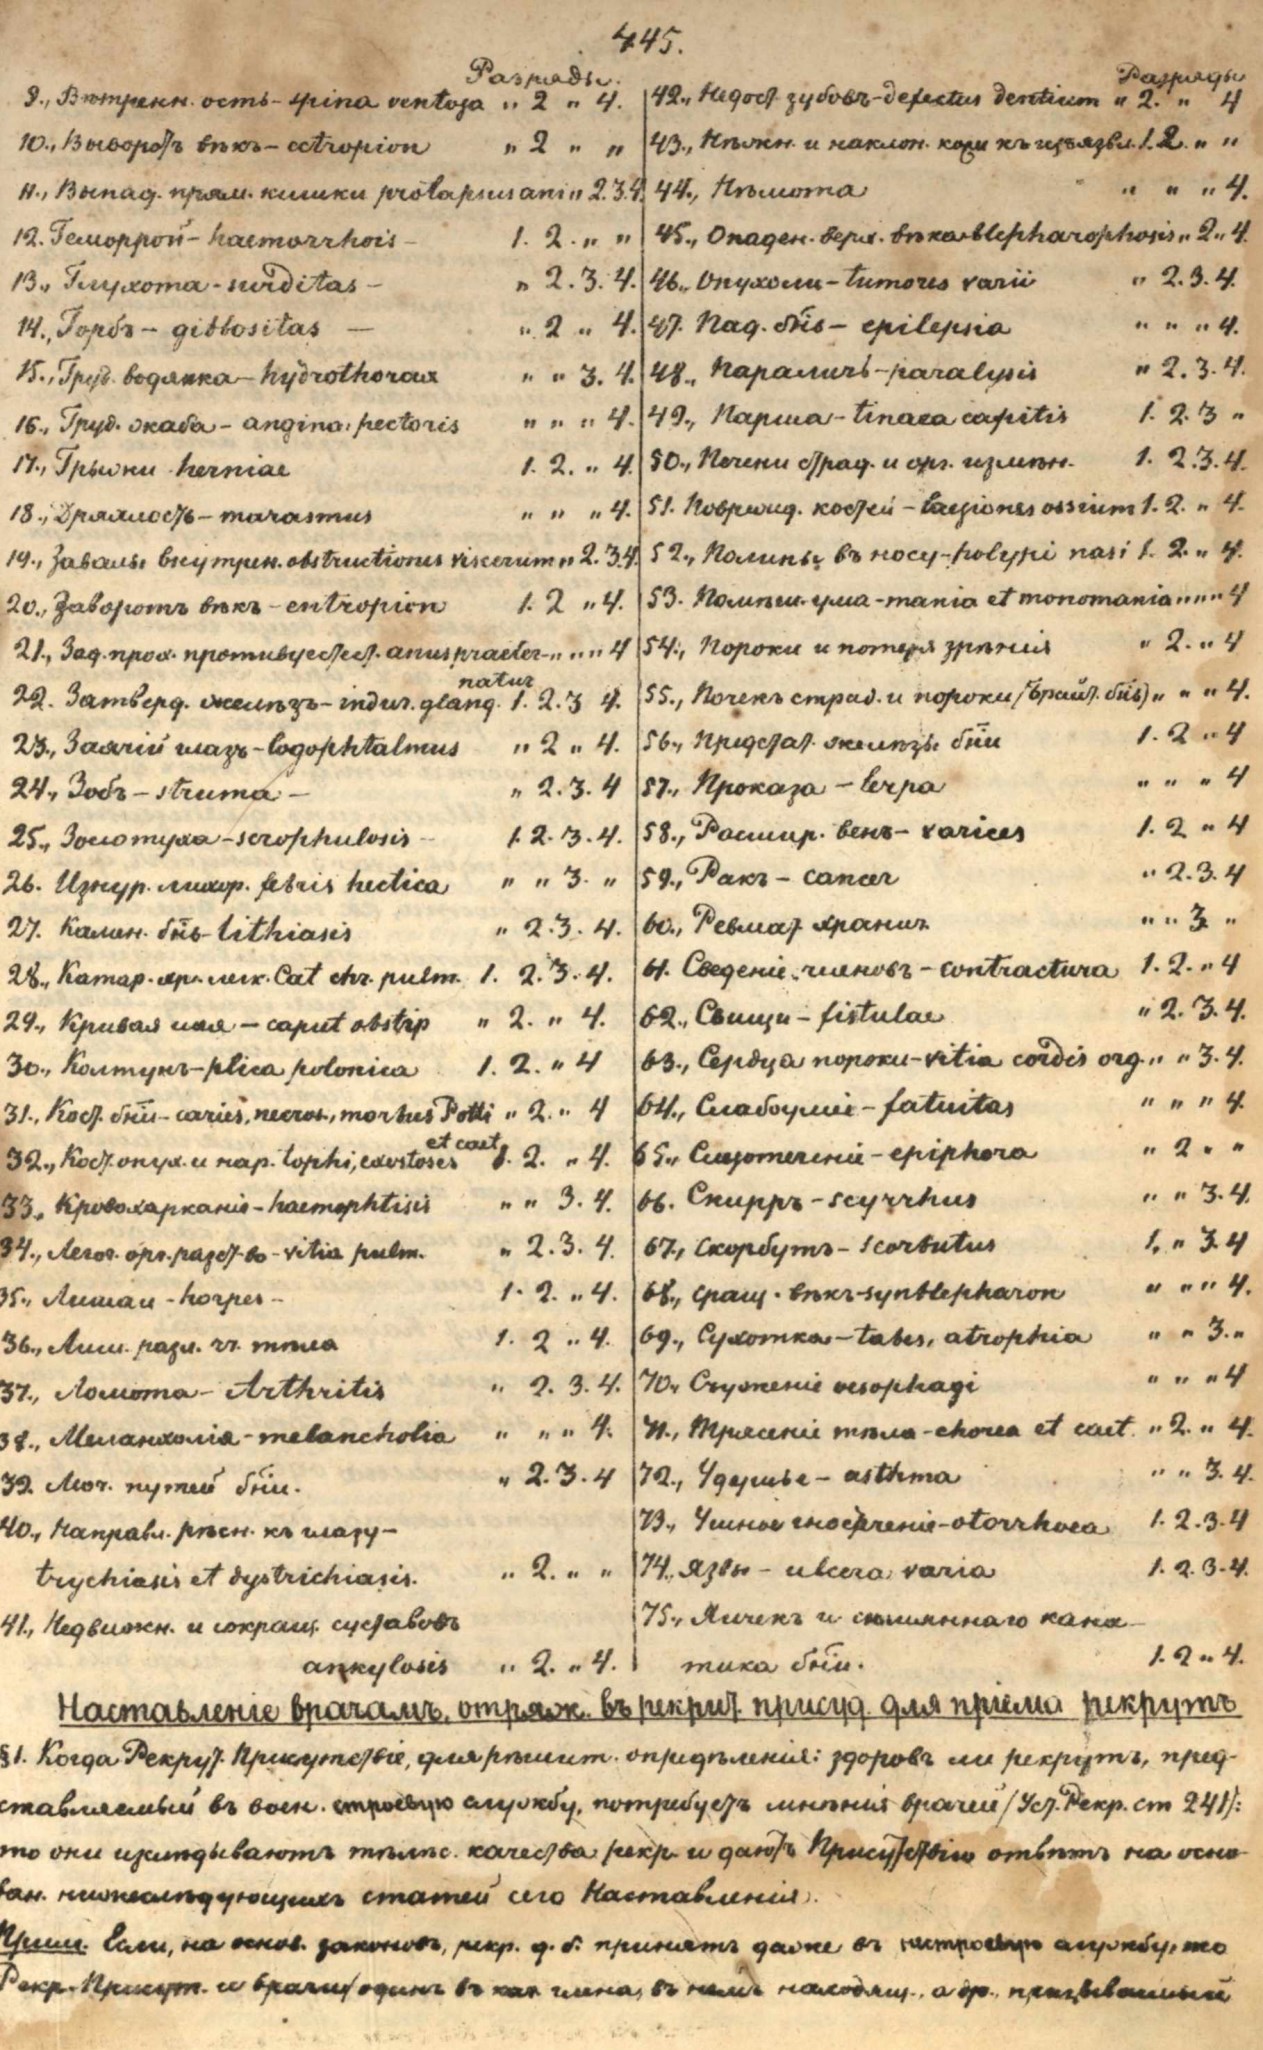 445.
Разряды.
9., Вѣтренн. ость - spina ventosa " 2 " 4.
10., Выворотъ вѣкъ - ectropion " 2 " "
11., Выпад. прям. кишки prolapsus ani " 2.3.4.
12. Геморрой - haemorrhois - 1. 2. " "
13., Глухота - surditas - " 2. 3. 4.
14., Горбъ - gibbositas - " 2 " 4.
15., Груд. водянка - hydrothorax " " 3. 4.
16., Груд. жаба - angina pectoris " " " 4.
17., Грыжи herniae 1. 2. " 4.
18., Дряхлость - marasmus " " " 4.
19., Завалы внутрен. obstructiones viscerum " 2.3.4.
20., Заворотъ вѣкъ - entropion 1. 2 " 4.
21., Зад. прох. противуестест. anus praeter- " " " 4
natur
22. Затверд. желѣзъ - indur. gland. 1. 2. 3 4.
23., Заячій глазъ - lagophtalmus " 2 " 4.
24., Зобъ - struma - " 2. 3. 4
25., Золотуха - scrophulosis - 1. 2. 3. 4.
26. Изнур. лихор. febris hectica " " 3. "
27. Камен. бнь - lithiasis " 2. 3. 4.
28., Катар. хр. лек. Cat chr. pulm. 1. 2. 3. 4.
29., Кривая шея - caput obstip " 2. " 4.
30., Колтунъ - plica polonica 1. 2. " 4
31., Кост. бни - caries, necros., morbus Potti " 2. " 4
et caet
32., Кост. опух. и нар. tophi, exostoses 1. 2. " 4.
33., Кровохарканіе - haemophtisis " " 3. 4.
34., Легоч. орг. разст-во - vitia pulm. " 2. 3. 4.
35., Лишаи - herpes - 1. 2. " 4.
36., Лиш. разл. ч. тѣла 1. 2 " 4.
37., Ломота - Arthritis " 2. 3. 4.
38., Меланхолія - melancholia " " " 4.
39. Моч. путей бни. " 2. 3. 4
40., Направл. рѣсн. къ глазу -
trychiasis et dystrichiasis. " 2. " "
41., Недвижн. и сокращ. суставовъ
ankylosis " 2. " 4.
Разряды
42., Недост. зубовъ - defectus dentium " 2. " 4
43., Нѣжн. и наклон. кожи къ изъязвл. 1. 2. " "
44., Нѣмота " " " 4.
45., Опаден. верх. вѣка - blepharophosis " 2 " 4.
46., Опухоли - tumores varii " 2. 3. 4.
47. Пад. бнь - epilepsia " " " 4.
48., Параличъ - paralysis " 2. 3. 4.
49., Парша - tinaea capitis 1. 2. 3 "
50., Печени страд. и орг. измѣн. 1. 2. 3. 4.
51. Поврежд. костей - laesiones ossium 1. 2. " 4.
52., Полипы въ носу - polypi nasi 1. 2. " 4.
53. Помѣш. ума - mania et monomania " " " 4
54., Пороки и потеря зрѣнія " 2. " 4
55., Почекъ страд. и пороки (Брайт. бнь) " " " 4.
56., Предстат. желѣзы бни 1. 2 " 4
57., Проказа - lepra " " " 4
58., Расшир. венъ - varices 1. 2 " 4
59., Ракъ - cancer " 2. 3. 4
60., Ревмат. хранич. " " 3 "
61. Сведеніе членовъ - contractura 1. 2. " 4
62., Свищи - fistulae " 2. 3. 4.
63., Сердца пороки - vitia cordis org. " " 3. 4.
64., Слабоуміе - fatuitas " " " 4.
65., Слезотеченіе - epiphora " 2 " "
66. Скирръ - scyrrhus " " 3. 4.
67., Скорбутъ - scorbutus 1. " 3. 4
68., Сращ. вѣкъ - synblepharon " " " 4.
69., Сухотка - tabes, atrophia " " 3. "
70., Съуженіе oesophagi " " " 4
71., Трясеніе тѣла - chorea et caet. " 2. " 4.
72., Удушье - asthma " " 3. 4.
73., Ушное гнотеченіе - otorrhoea 1. 2. 3. 4
74., Язвы - ulcera varia 1. 2. 3. 4.
75., Яичекъ и сѣмяннаго кана-
тика бни. 1. 2 " 4.
Наставленіе врачамъ, отряж. въ рекрут. присуд. для пріема рекрутъ
§1. Когда Рекрут. Присутствіе, для рѣшит. опредѣленія: здоровъ ли рекрутъ, пред-
ставляемый въ воен. строевую службу, потребуетъ мнѣнія врачей (Уст. Рекр. ст 241):
то они изслѣдываютъ тѣлес. качества рекр. и даютъ Присутствію отвѣтъ на осно-
ван. нижеслѣдующихъ статей сего Наставленія.
Прим. Если, на основ. законовъ, рекр. д. б. принятъ даже въ нестроевую службу, то
Рекр. Присут. и врачи (одинъ въ кач. члена, въ немъ находящ., а др., призываемый